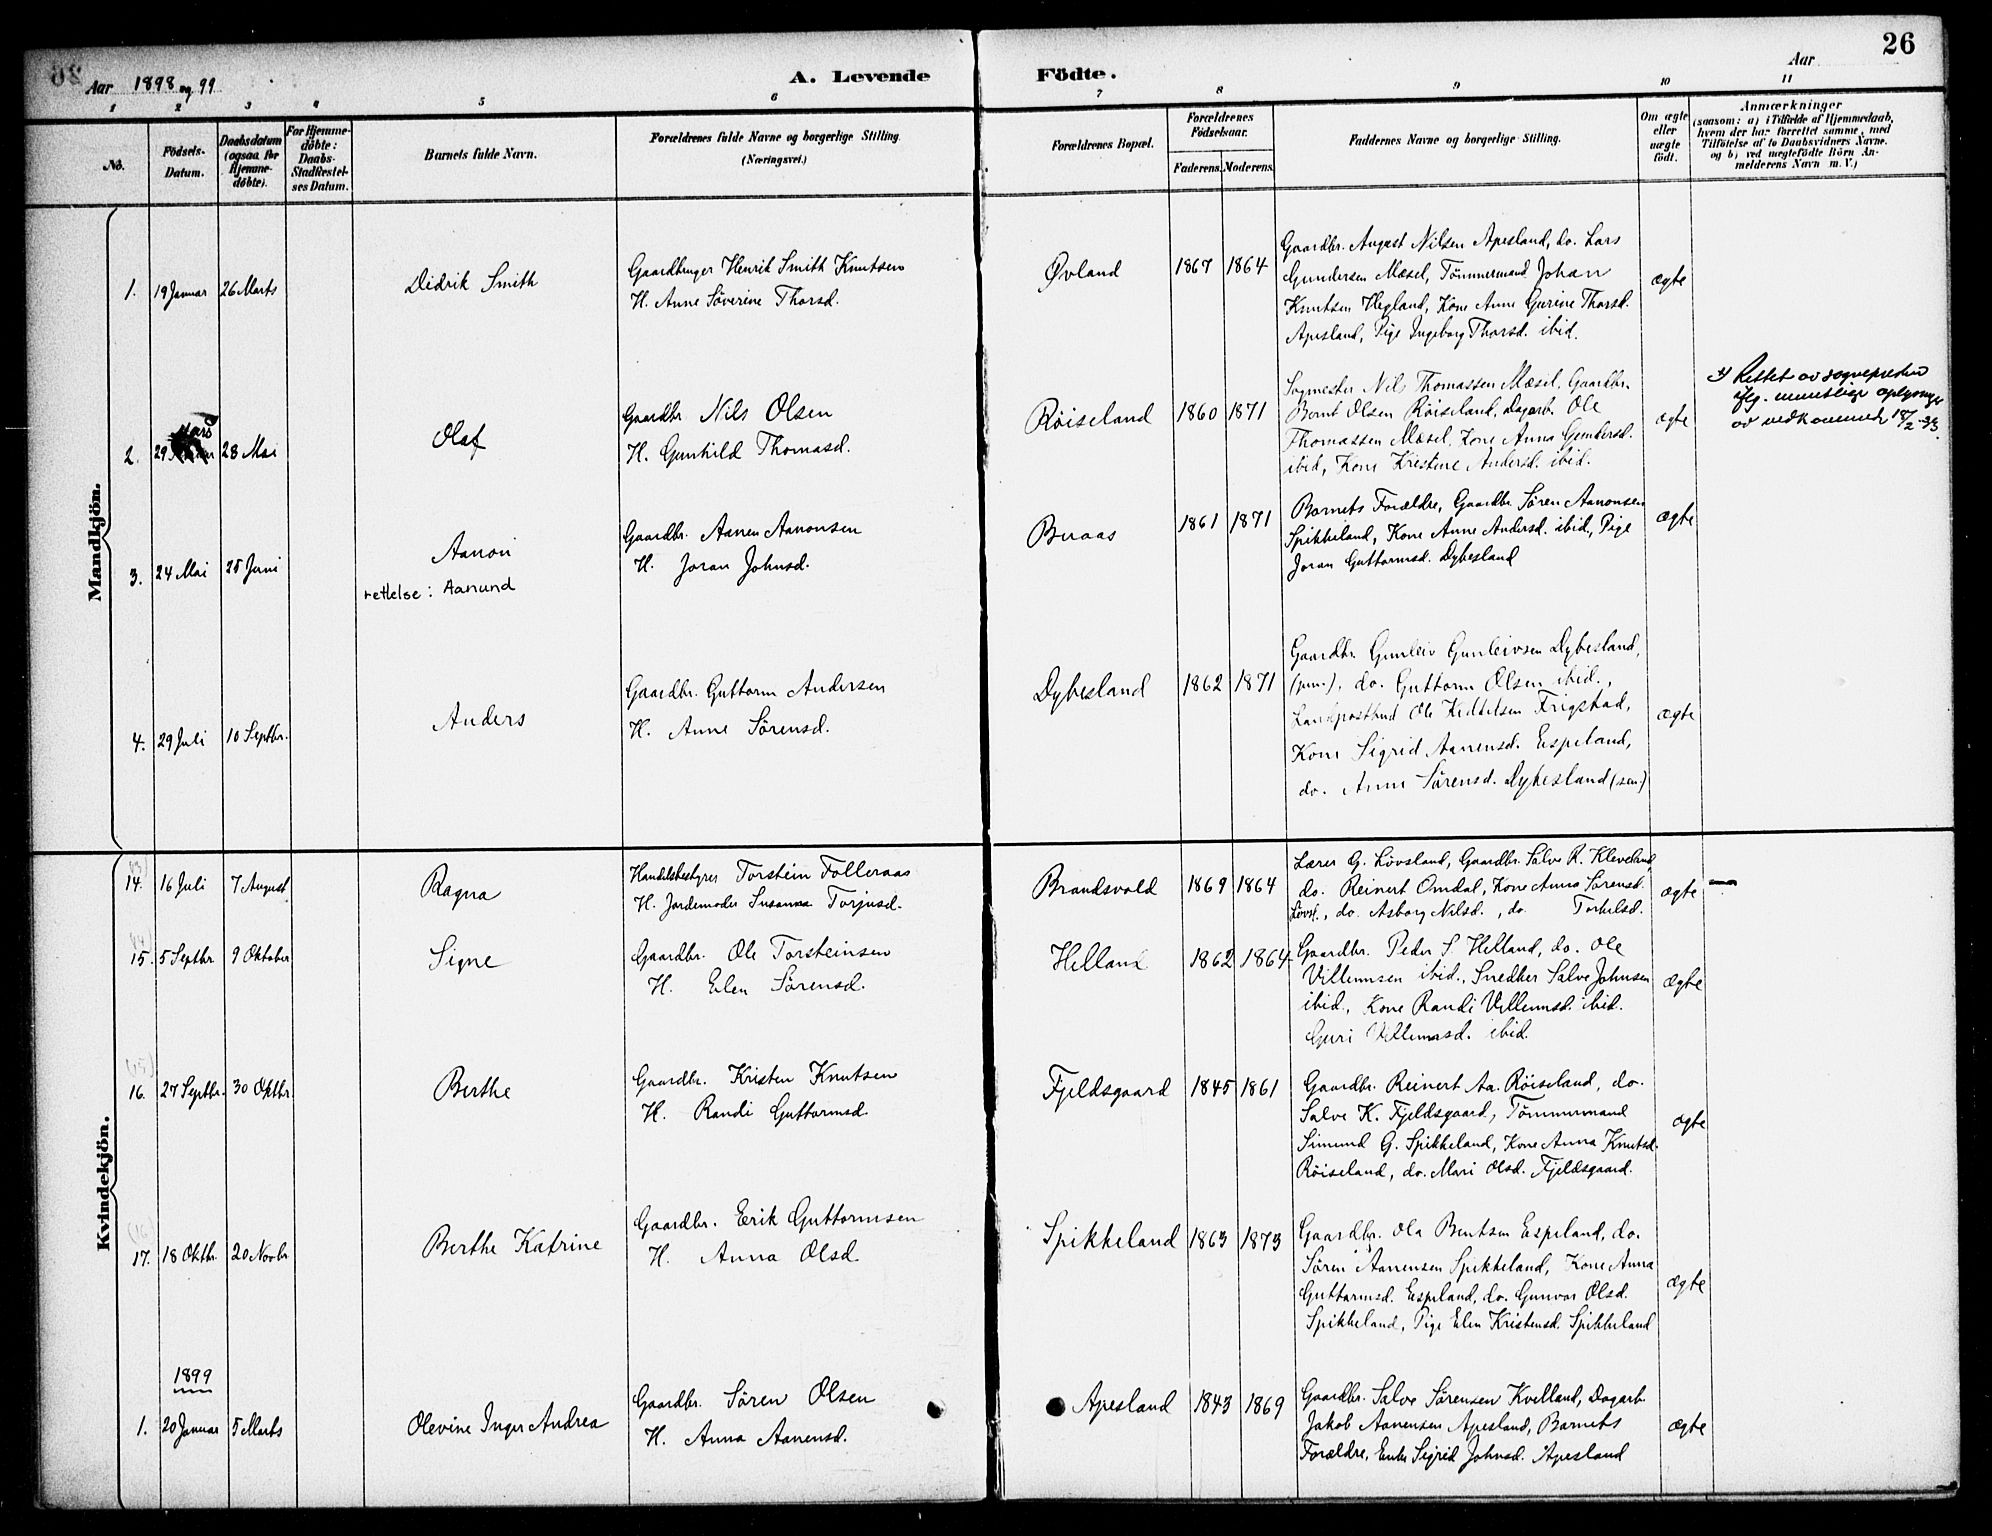 26
Aar 1898 og 99
A. Levende Födte.
Aar
1 2 3 4 5 6 7 8 9 10 11
No.
Födsels-Datum.
Daabsdatum (ogsaa for Hjemme-döbte).
For Hjemme-döbte: Daabs-Stadfæstel-ses Datum.
Barnets fulde Navn.
Forældrenes fulde Navne og borgerlige Stilling.
(Næringsvei.)
Forældrenes Bopæl.
Forældrenes Födselsaar.
Faderens. Moderens.
Faddernes Navne og borgerlige Stilling.
Om ægte eller uægte födt.
Anmærkninger
(saasom: a) i Tilfælde af Hjemmedaab,
hvem der har forrettet samme, med
Tilföielse af to Daabsvidners Navne.
og b) ved uægtefödte Börn An-
melderens Navn m. V.)
Mandkjön.
1. 19 Januar 26 Marts Didrik Smith
Gaardbruger Henrik Smith Knutsen
H. Anne Söverine Thorsd.
Øvland 1867 1864
Gaardbr. August Nilsen Apesland, do. Lars
Gundersen Mæsel, Tömmermand Johan
Knutsen Hegland, Kone Anne Gurine Thorsd.
Apesland, Pige Ingeborg Thorsd. ibid.
ægte
2. 29 Mars 28 Mai Olaf
Gaardbr. Nils Olsen
H. Gunhild Thomasd.
Röiseland 1860 1871
Sogmester Nils Thomassen Mæsel, Gaardbr.
Bernt Olsen Röiseland, Dagarb. Ole
Thomassen Mæsel, Kone Anna Gundersd.
ibid, Kone Kristine Andersd. ibid.
ægte
Rettet av sognepresten
iflg. muntlige oplysninger
av vedkommende 18/2-33.
3. 24 Mai 25 Juni Aanon
rettelse: Aanund
Gaardbr. Aanen Aanonsen
H. Joran Johnsd.
Buaas 1861 1871
Barnets Forældre, Gaardbr. Sören Aanonsen
Spikkeland, Kone Anne Andersd. ibid, Pige
Joran Guttormsd. Dybesland
ægte
4. 29 Juli 10 Septbr. Anders
Gaardbr. Guttorm Andersen
H. Anne Sörensd.
Dybesland 1862 1871
Gaardbr. Gunleiv Gunleivsen Dybesland,
(jun.), do. Guttorm Olsen ibid.,
Landpostbud Ole Kittelsen Frigstad,
Kone Sigrid Aanensd. Espeland,
do. Anne Sörensd. Dybesland (sen.)
ægte
Kvindekjön.
14. 16 Juli 7 August Ragna
Handelsbestyrer Torstein Folleraas
H. Jordemoder Susanna Torjusd.
Brandsvold 1869 1864
Lærer G. Lövsland, Gaardbr. Salve R. Kleveland,
do. Reinert Omdal, Kone Anna Sörensd.
Lövsl., do. Asborg Nilsd., do. Torkelsd.
ægte
15. 5 Septbr 9 Oktober Signe
Gaardbr. Ole Torsteinsen
H. Elen Sörensd.
Helland 1862 1864
Gaardbr. Peder S. Helland, do. Ole
Villumsen ibid., Snedker Salve Johnsen
ibid., Kone Randi Villumsd. ibid.
Guri Villumsd. ibid.
ægte
16. 27 Septbr. 30 Oktbr. Berthe
Gaardbr. Kristen Knutsen
H. Randi Guttormsd.
Fjeldsgaard 1845 1861
Gaardbr. Reinert Aa. Röiseland, do.
Salve K. Fjeldsgaard, Tömmermand
Simund G. Spikkeland, Kone Anna Knutsd.
Röiseland, do. Mari Olsd. Fjeldsgaard.
ægte
17. 18 Oktbr. 20 Novbr Berthe Katrine
Gaardbr. Erik Guttormsen
H. Anna Olsd.
Spikkeland 1863 1873
Gaardbr. Ola Bentsen Espeland, do.
Sören Aanensen Spikkeland, Kone Anna
Guttormsd. Espeland, do. Gunvor Olsd.
Spikkeland, Pige Elen Kristensd. Spikkeland
ægte
1899
1. 20 Januar 5 Marts Olevine Inger Andrea
Gaardbr. Sören Olsen
H. Anna Aanensd.
Apesland 1843 1869
Gaardbr. Salve Sörensen Kvelland, Dagarb.
Jakob Aanensen Apesland, Barnets
Forældre, Enke Sigrid Johnsd. Apesland
ægte